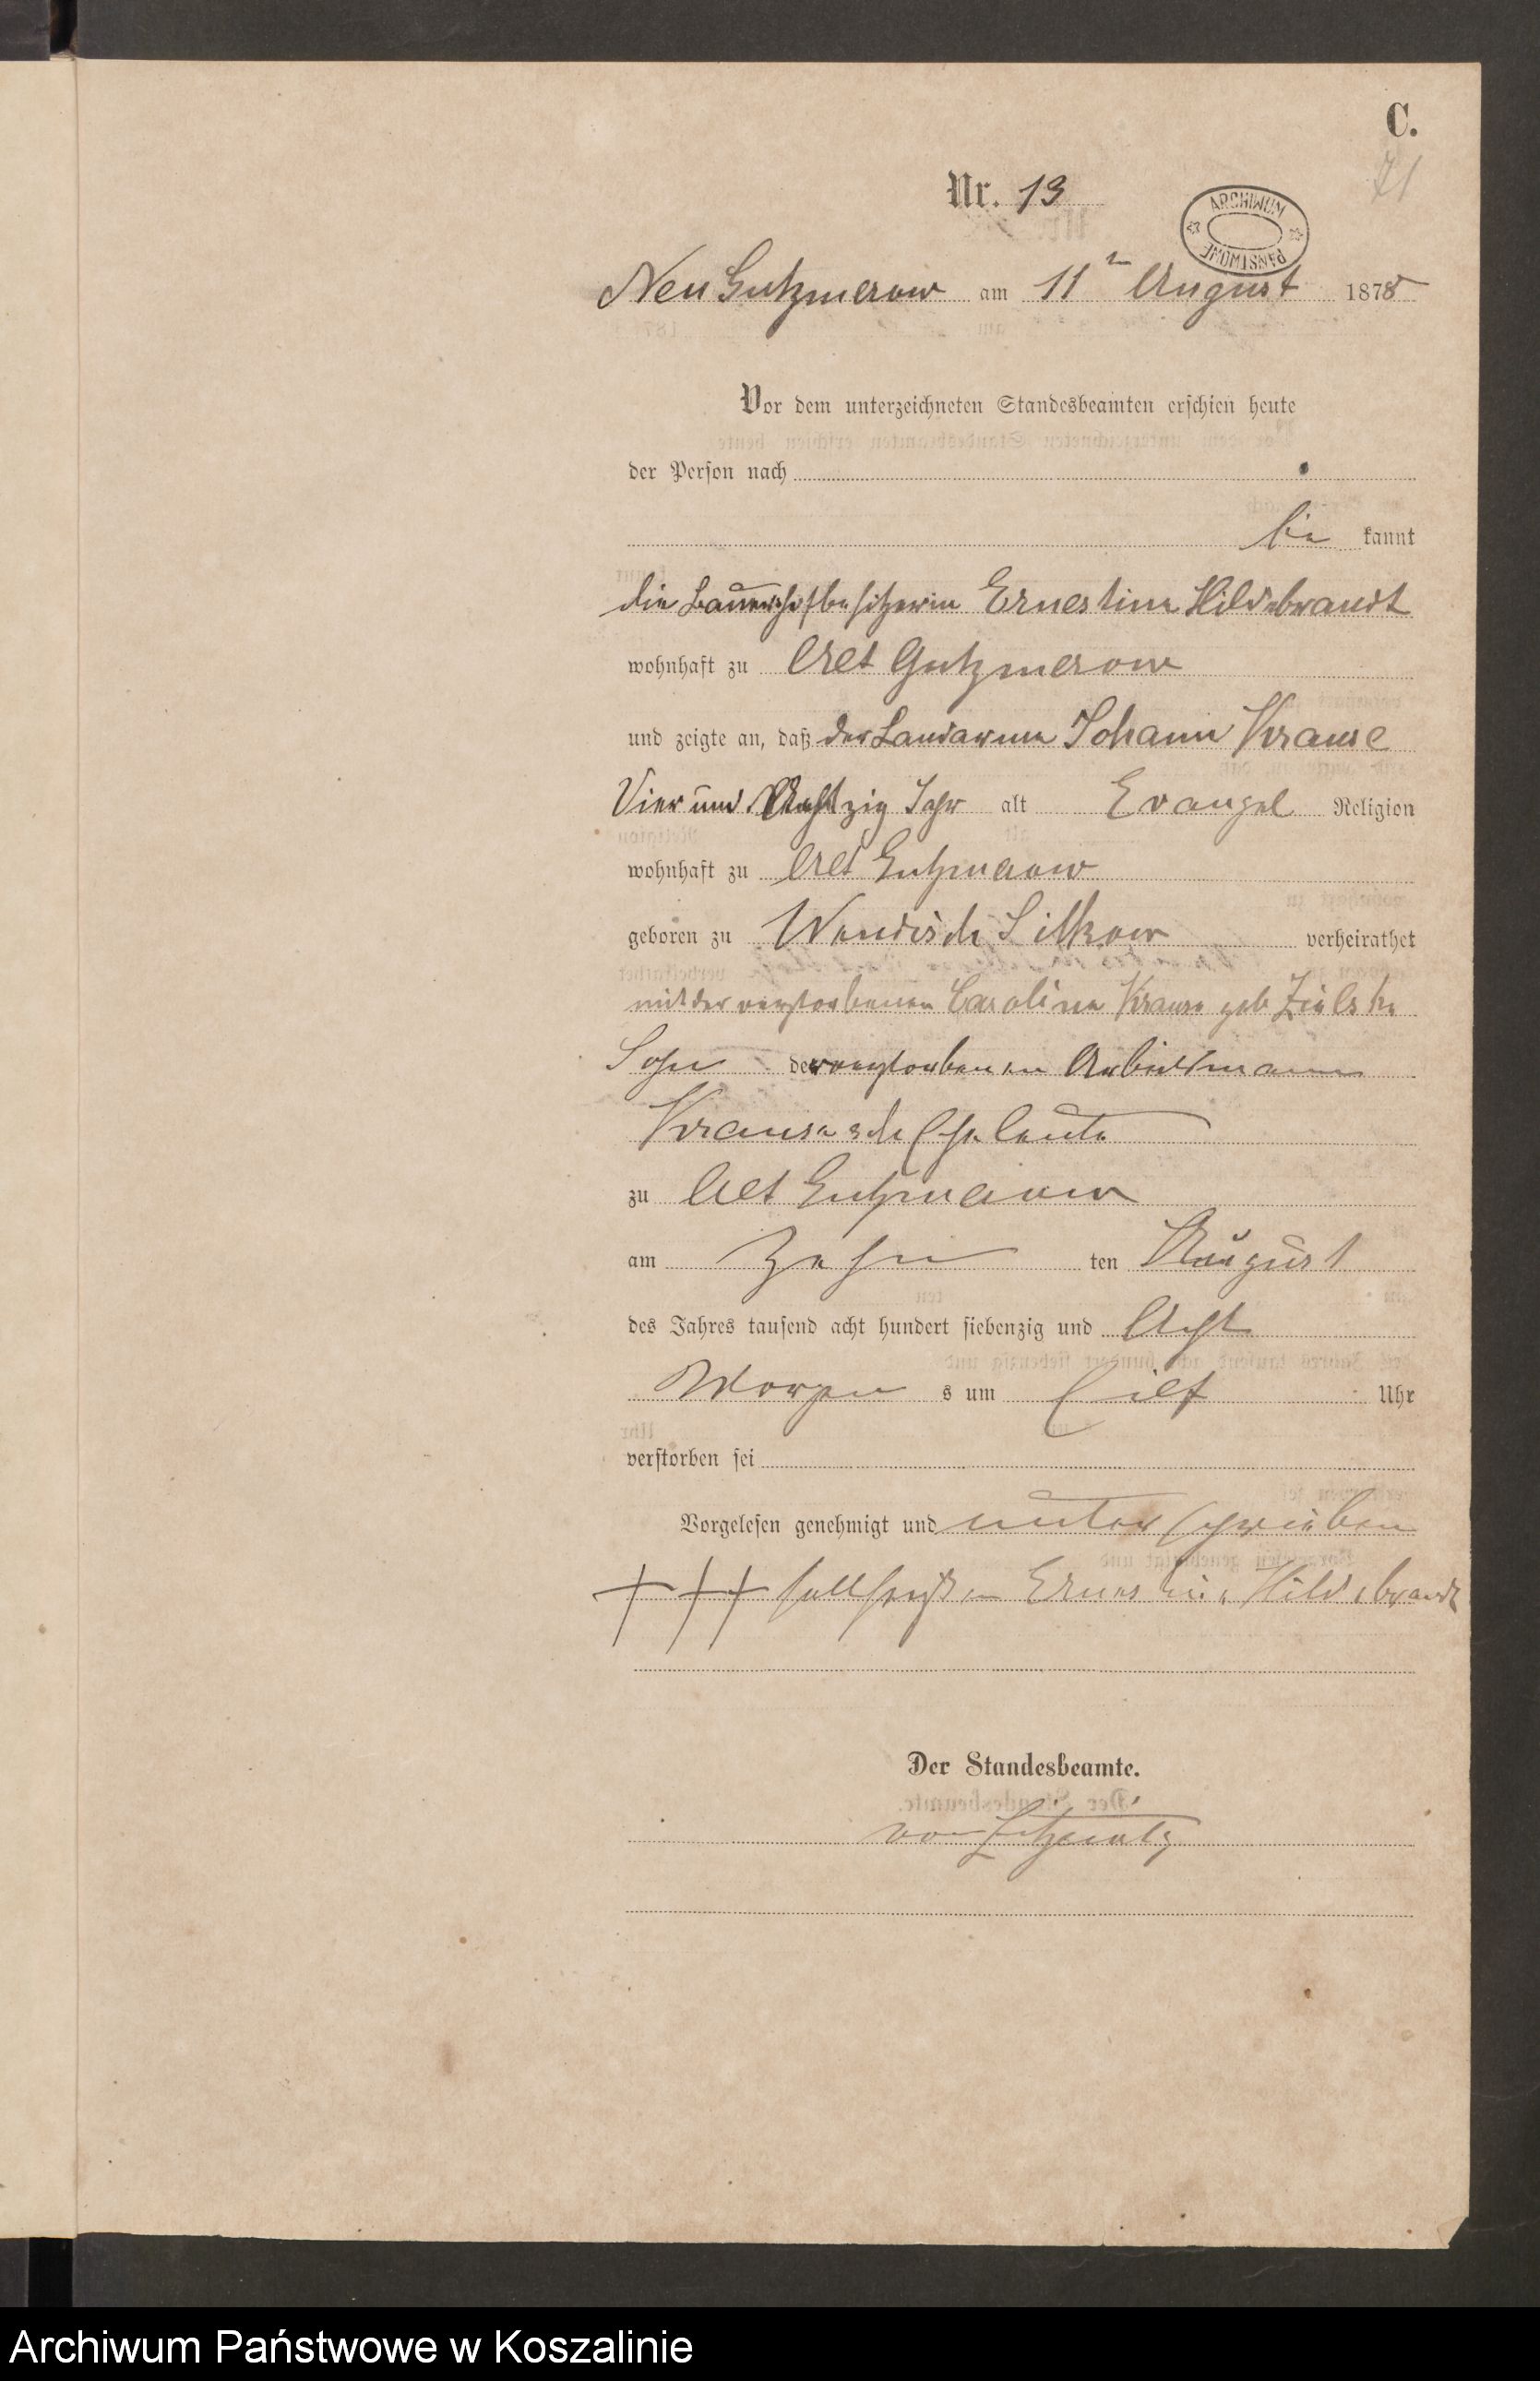 C.
71
Nr. 13
ARCHIWUM PAŃSTWOWE
Neu Gutzmerow am 11ᵗ August 1878
Vor dem unterzeichneten Standesbeamten erschien heute
der Person nach
be kannt
die Bauerhofbesitzerin Ernestine Hildebrandt
wohnhaft zu Alt Gutzmerow
und zeigte an, daß der Landarme Johann Krause
Vier und Achtzig Jahr alt Evangel Religion
wohnhaft zu Alt Gutzmerow
geboren zu Wendisch Silkow verheirathet
mit der verstorbenen Caroline Krause geb
Sohn der verstorbenen Arbeitsmann
Krauseschen Eheleute
zu Alt Gutzmerow
am Zehn ten August
des Jahres tausend acht hundert siebenzig und Acht
Morgen s um Eilf Uhr
verstorben sei
Vorgelesen genehmigt und unterschrieben
+ + + Ernestine Hildebrandt
Der Standesbeamte.
von
Archiwum Państwowe w Koszalinie